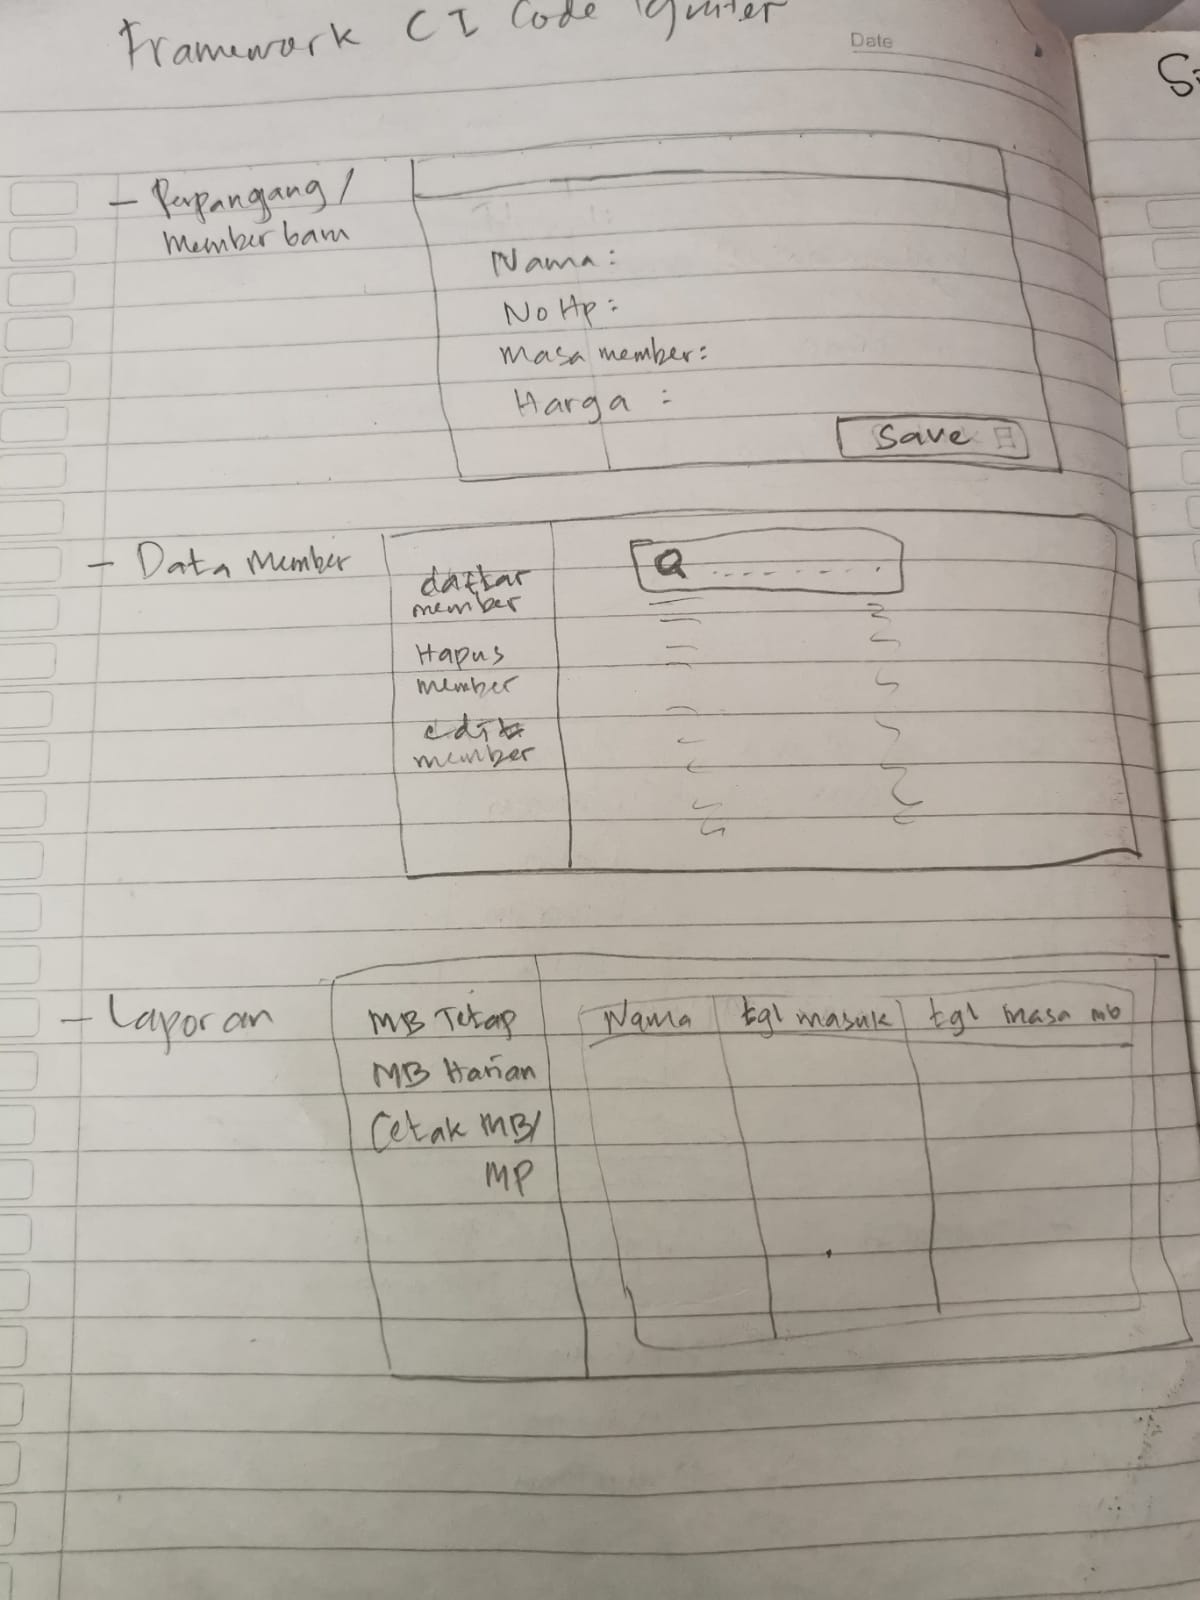 Framework CI Code Igniter
Date
- Perpangang /
member baru
Nama :
No Hp :
Masa member :
Harga :
Save
- Data Member
daftar
member
Hapus
member
edit
member
Q . . . . . . . .
- Laporan
MB Tetap
MB Harian
Cetak MB/
MP
Nama
tgl masuk
tgl masa mb